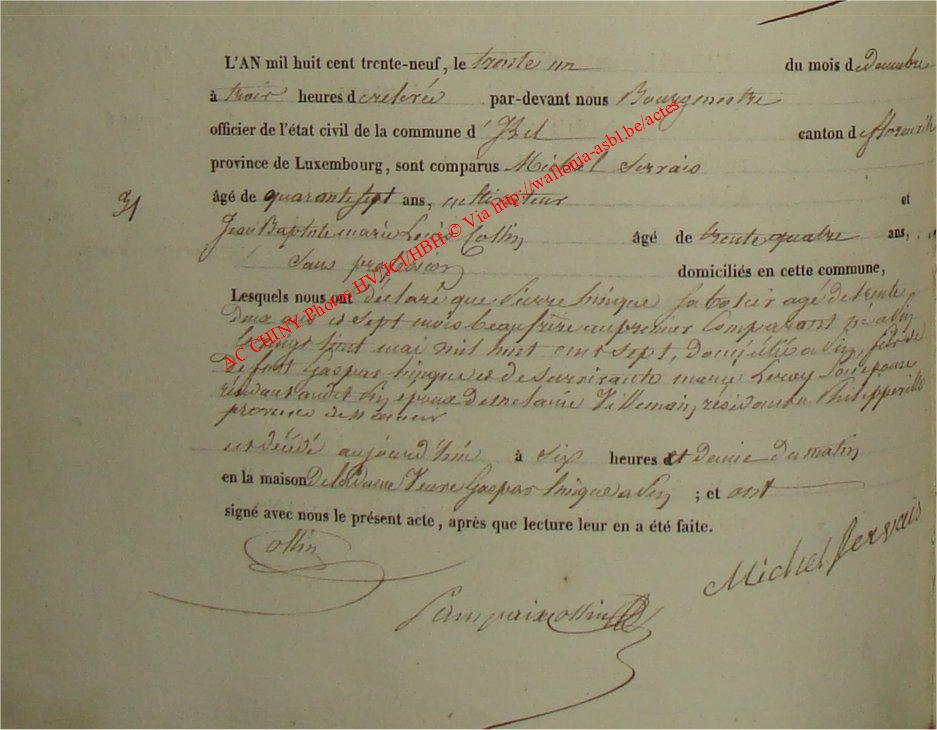 L'AN mil huit cent trente-neuf, le trente un du mois de decembre
à trois heures de relevée par-devant nous Bourgmestre
officier de l'état civil de la commune d' Izel canton de florenville
province de Luxembourg, sont comparus Michel Servais
31 âgé de quarante sept ans, cultivateur et
Jean Baptiste marie Louis Collin âgé de trente quatre ans,
sans profession domiciliés en cette commune,
Lesquels nous ont déclaré que Pierre hinque sabotier agé de trente
deux ans et sept mois beaufrère au premier Comparant né a Pin
le vingt mai mil huit cent sept, domicilié a Pin, fils de
défunt Gaspar hinque et de survivante marie Leroy son épouse
résidant audit Pin epoux de melanie Villemain, résidant a Philippeville
province de namur
est décédé aujourd'hui à six heures et demie du matin
en la maison de la dame Veuve Gaspar hinque a Pin ; et ont
signé avec nous le présent acte, après que lecture leur en a été faite.
Collin
Michel Servais
Lampaix Collin
AC CHINY Photos HV/JCT/HBH © Via http://wallonia-asbl.be/actes